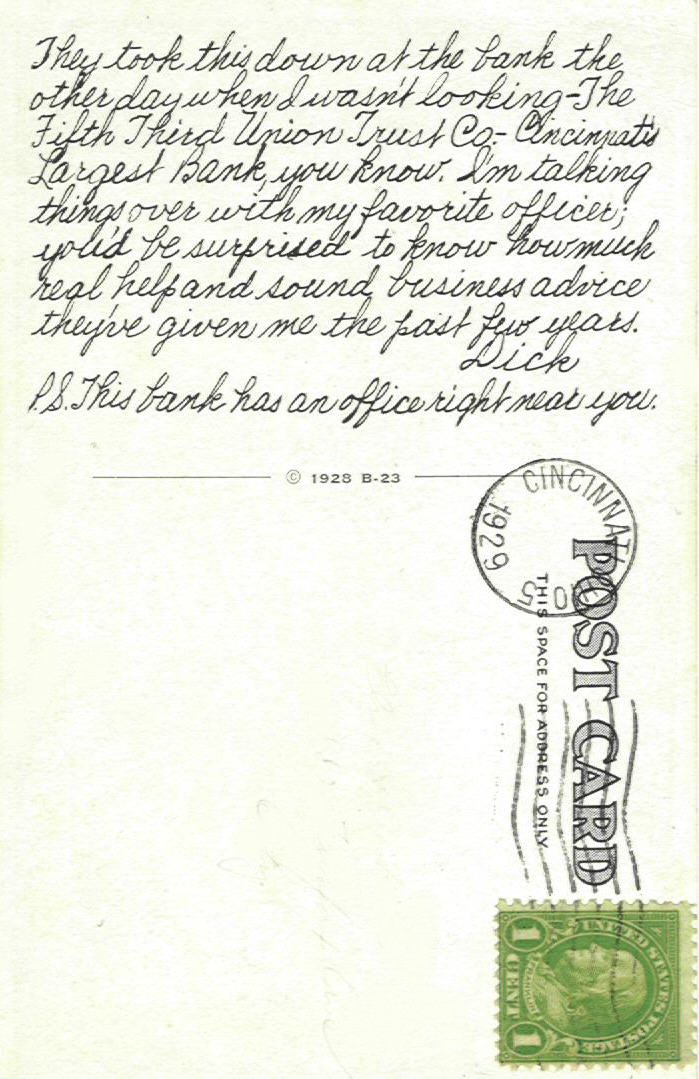 They took this down at the bank the
other day when I wasn't looking-The
Fifth Third Union Trust Co- Cincinnati's
Largest Bank, you know. I'm talking
things over with my favorite officer;
you'd be surprised to know how much
real help and sound business advice
they've given me the past few years.
Dick
P.S. This bank has an office right near you.
© 1928 B-23
CINCINNATI
1929
5
POST CARD
THIS SPACE FOR ADDRESS ONLY
UNITED STATES POSTAGE
FRANKLIN
1 CENT 1